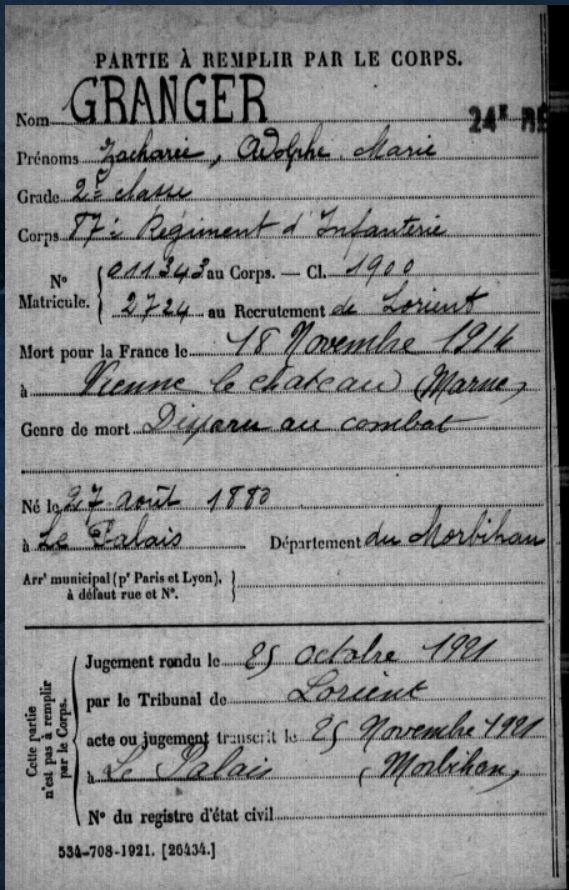 PARTIE À REMPLIR PAR LE CORPS.
Nom GRANGER
24E RÉ
Prénoms Zacharie, Adolphe Marie
Grade 2e classe
Corps 87e Régiment d'Infanterie
No Matricule. { 011343 au Corps. — Cl. 1900
2724 au Recrutement de Lorient
Mort pour la France le 18 Novembre 1914
à Vienne le chateau (Marne)
Genre de mort Disparu au combat
Né le 27 août 1880
à Le Palais Département du Morbihan
Arrt municipal (pr Paris et Lyon), à défaut rue et No. }
Cette partie n'est pas à remplir par le Corps.
Jugement rendu le 25 octobre 1921
par le Tribunal de Lorient
acte ou jugement transcrit le 25 Novembre 1921
à Le Palais (Morbihan)
No du registre d'état civil
534-708-1921. [26434.]